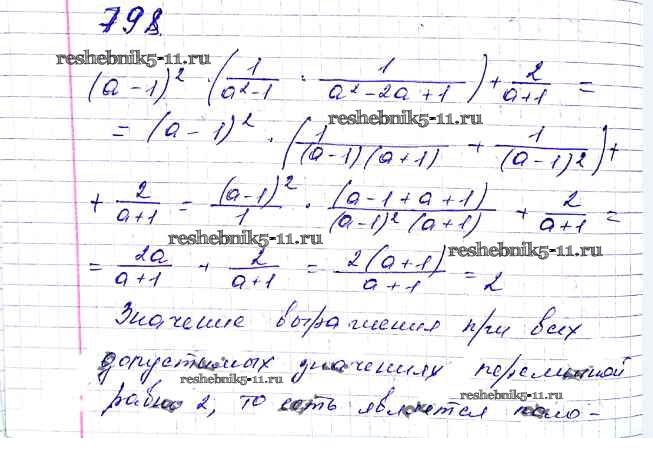 798
reshebnik5-11.ru
(a-1)² · (1/(a²-1) · 1/(a²-2a+1)) + 2/(a+1) =
reshebnik5-11.ru
= (a-1)² · (1/((a-1)(a+1)) + 1/(a-1)²) +
+ 2/(a+1) = (a-1)²/1 · (a-1+a+1)/((a-1)²(a+1)) + 2/(a+1) =
reshebnik5-11.ru
reshebnik5-11.ru
= 2a/(a+1) + 2/(a+1) = 2(a+1)/(a+1) = 2
Значение выражения при всех
допустимых значениях переменной
reshebnik5-11.ru
reshebnik5-11.ru
равно 2, то есть является поло-